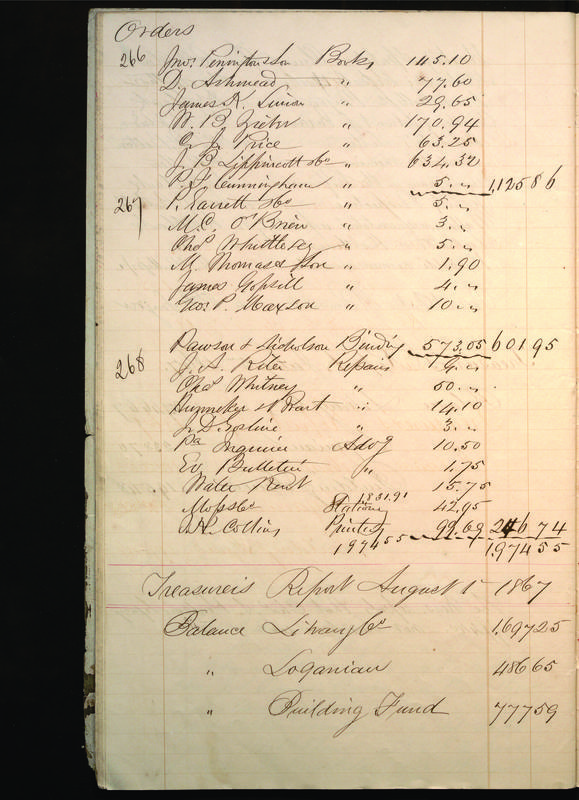 Orders
266 Jno. Pennington & Son Books 145.10
D. Ashmead " 77.60
James K. Simon " 29.65
W. B. Zieber " 170.94
E. J. Price " 63.25
J. B. Lippincott & Co " 634.32
P. J. Cunningham " 5. " 1,125 86
267 P. Garrett & Co " 5. "
M. C. O'Brien " 3. "
Chas Whittlesey " 5. "
M. Thomas & Son " 1.90
James Gopsill " 4. "
Geo. P. Maxson " 10 "
Pawson & Nicholson Binding 573.05 601 95
268 J. A. Kiler Repairs 9. "
Chas Whitney " 50. "
" 14.10
J. D. " 3. "
Pa Inquirer Advg 10.50
Ev Bulletin " 1.75
Water Rent 15.75
Moss & Co Station'y 1,831.91 42.95
Collins Printing 99.69 246 74
1974 55 1,974 55
Treasurer's Report August 1st 1867
Balance Library Co 1,697 25
" Loganian 486 65
" Building Fund 777 59